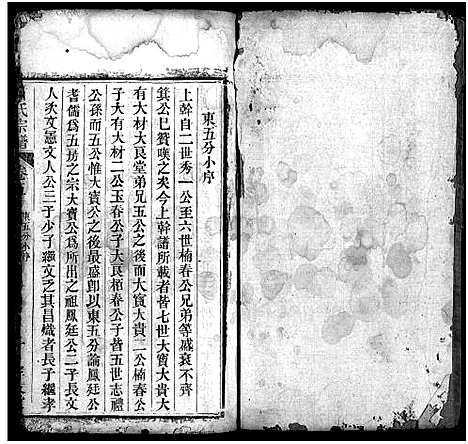 東五分小序
上幹自二世秀一公至六世楠春公兄弟等盛衰不齊
箕公已贊嘆之矣今上譜所載者皆七世大寶大貴大
有大材大良堂弟兄五公之後而大寶大貴二公楠春公
子大有大材二公玉春公子大良栢春公子皆五世志禮
公孫而五分惟大寶公之後最盛卽以東五分論鳳廷公
耆儒爲五房之宗大寶公爲所出之祖鳳廷公二子長文
人次文憲文人公三子少子繼文乏其昌熾者長子繼孝
氏宗譜
東五分小序